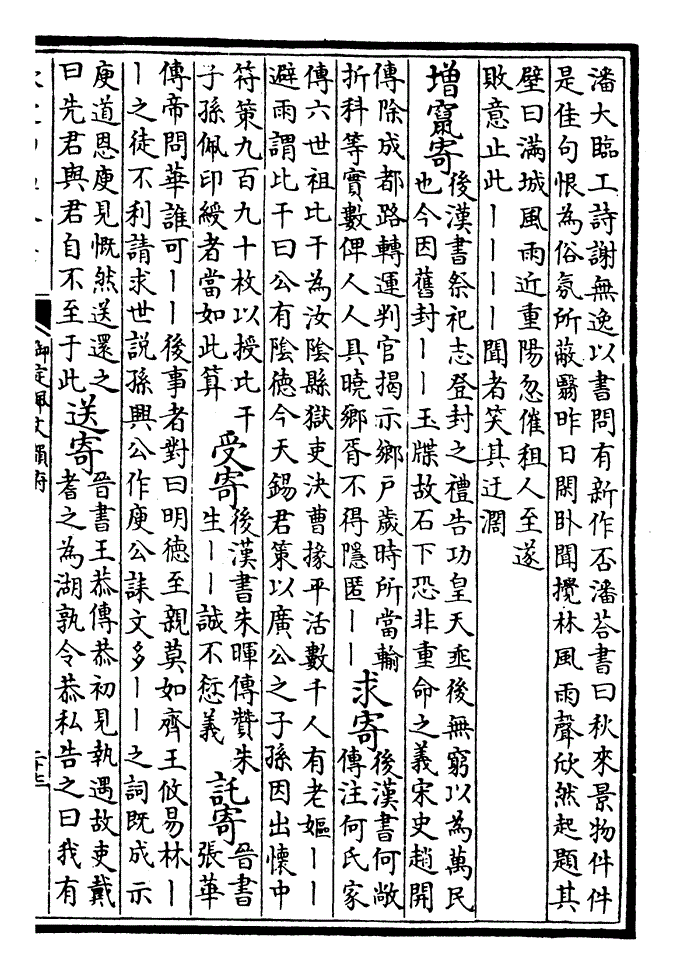 潘大臨工詩謝無逸以書問有新作否潘荅書曰秋來景物件件
是佳句恨為俗氛所蔽翳昨日閑卧聞攪林風雨聲欣然起題其
壁曰滿城風雨近重陽忽催租人至遂
敗意止此丨丨丨丨聞者笑其迂濶
增寘寄
後漢書祭祀志登封之禮告功皇天垂後無窮以為萬民
也今因舊封丨丨玉牒故石下恐非重命之義宋史趙開
傳除成都路轉運判官揭示鄉戶歲時所當輸
折科等實數俾人人具曉鄉胥不得隱匿丨丨
求寄
後漢書何敞
傳注何氏家
傳六世祖比干為汝陰縣獄吏決曹掾平活數千人有老嫗丨丨
避雨謂比干曰公有陰德今天錫君策以廣公之子孫因出懷中
符策九百九十枚以授比干
子孫佩印綬者當如此算
受寄
後漢書朱暉傳贊朱
生丨丨誠不愆義
託寄
晉書
張華
傳帝問華誰可丨丨後事者對曰明德至親莫如齊王攸易林丨
丨之徒不利請求世説孫興公作庾公誄文多丨丨之詞既成示
庾道恩庾見慨然送還之
曰先君與君自不至于此
送寄
晉書王恭傳恭初見執遇故吏戴
耆之為湖孰令恭私告之曰我有
御定佩文韻府